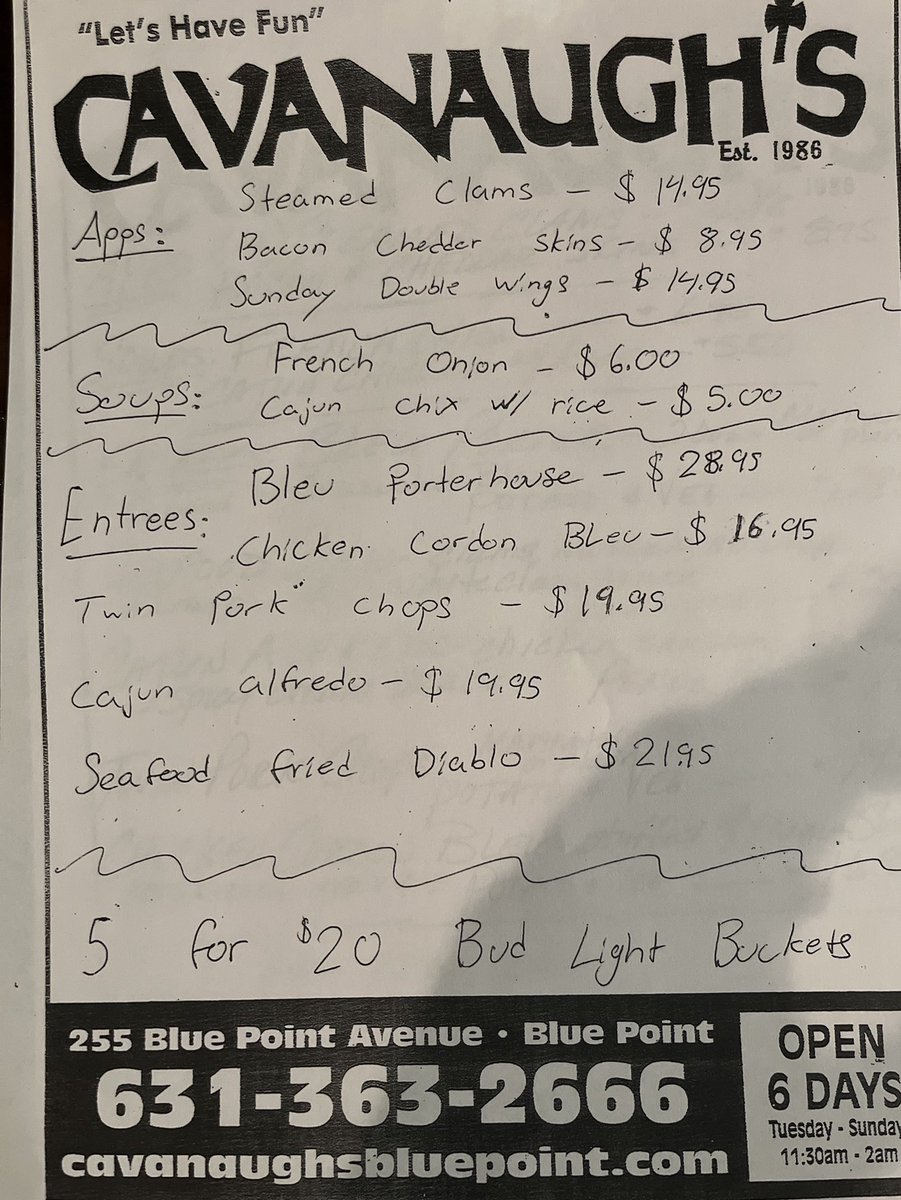 "Let's Have Fun"
CAVANAUGH'S
Est. 1986
Apps:
Steamed Clams - $14.95
Bacon Chedder Skins - $8.95
Sunday Double Wings - $14.95
Soups:
French Onion - $6.00
Cajun Chix w/ rice - $5.00
Entrees:
Bleu Porterhouse - $28.95
Chicken Cordon Bleu - $16.95
Twin Pork Chops - $19.95
Cajun alfredo - $19.95
Seafood fried Diablo - $21.95
5 for $20 Bud Light Buckets
255 Blue Point Avenue • Blue Point
631-363-2666
cavanaughsbluepoint.com
OPEN
6 DAYS
Tuesday - Sunday
11:30am - 2am